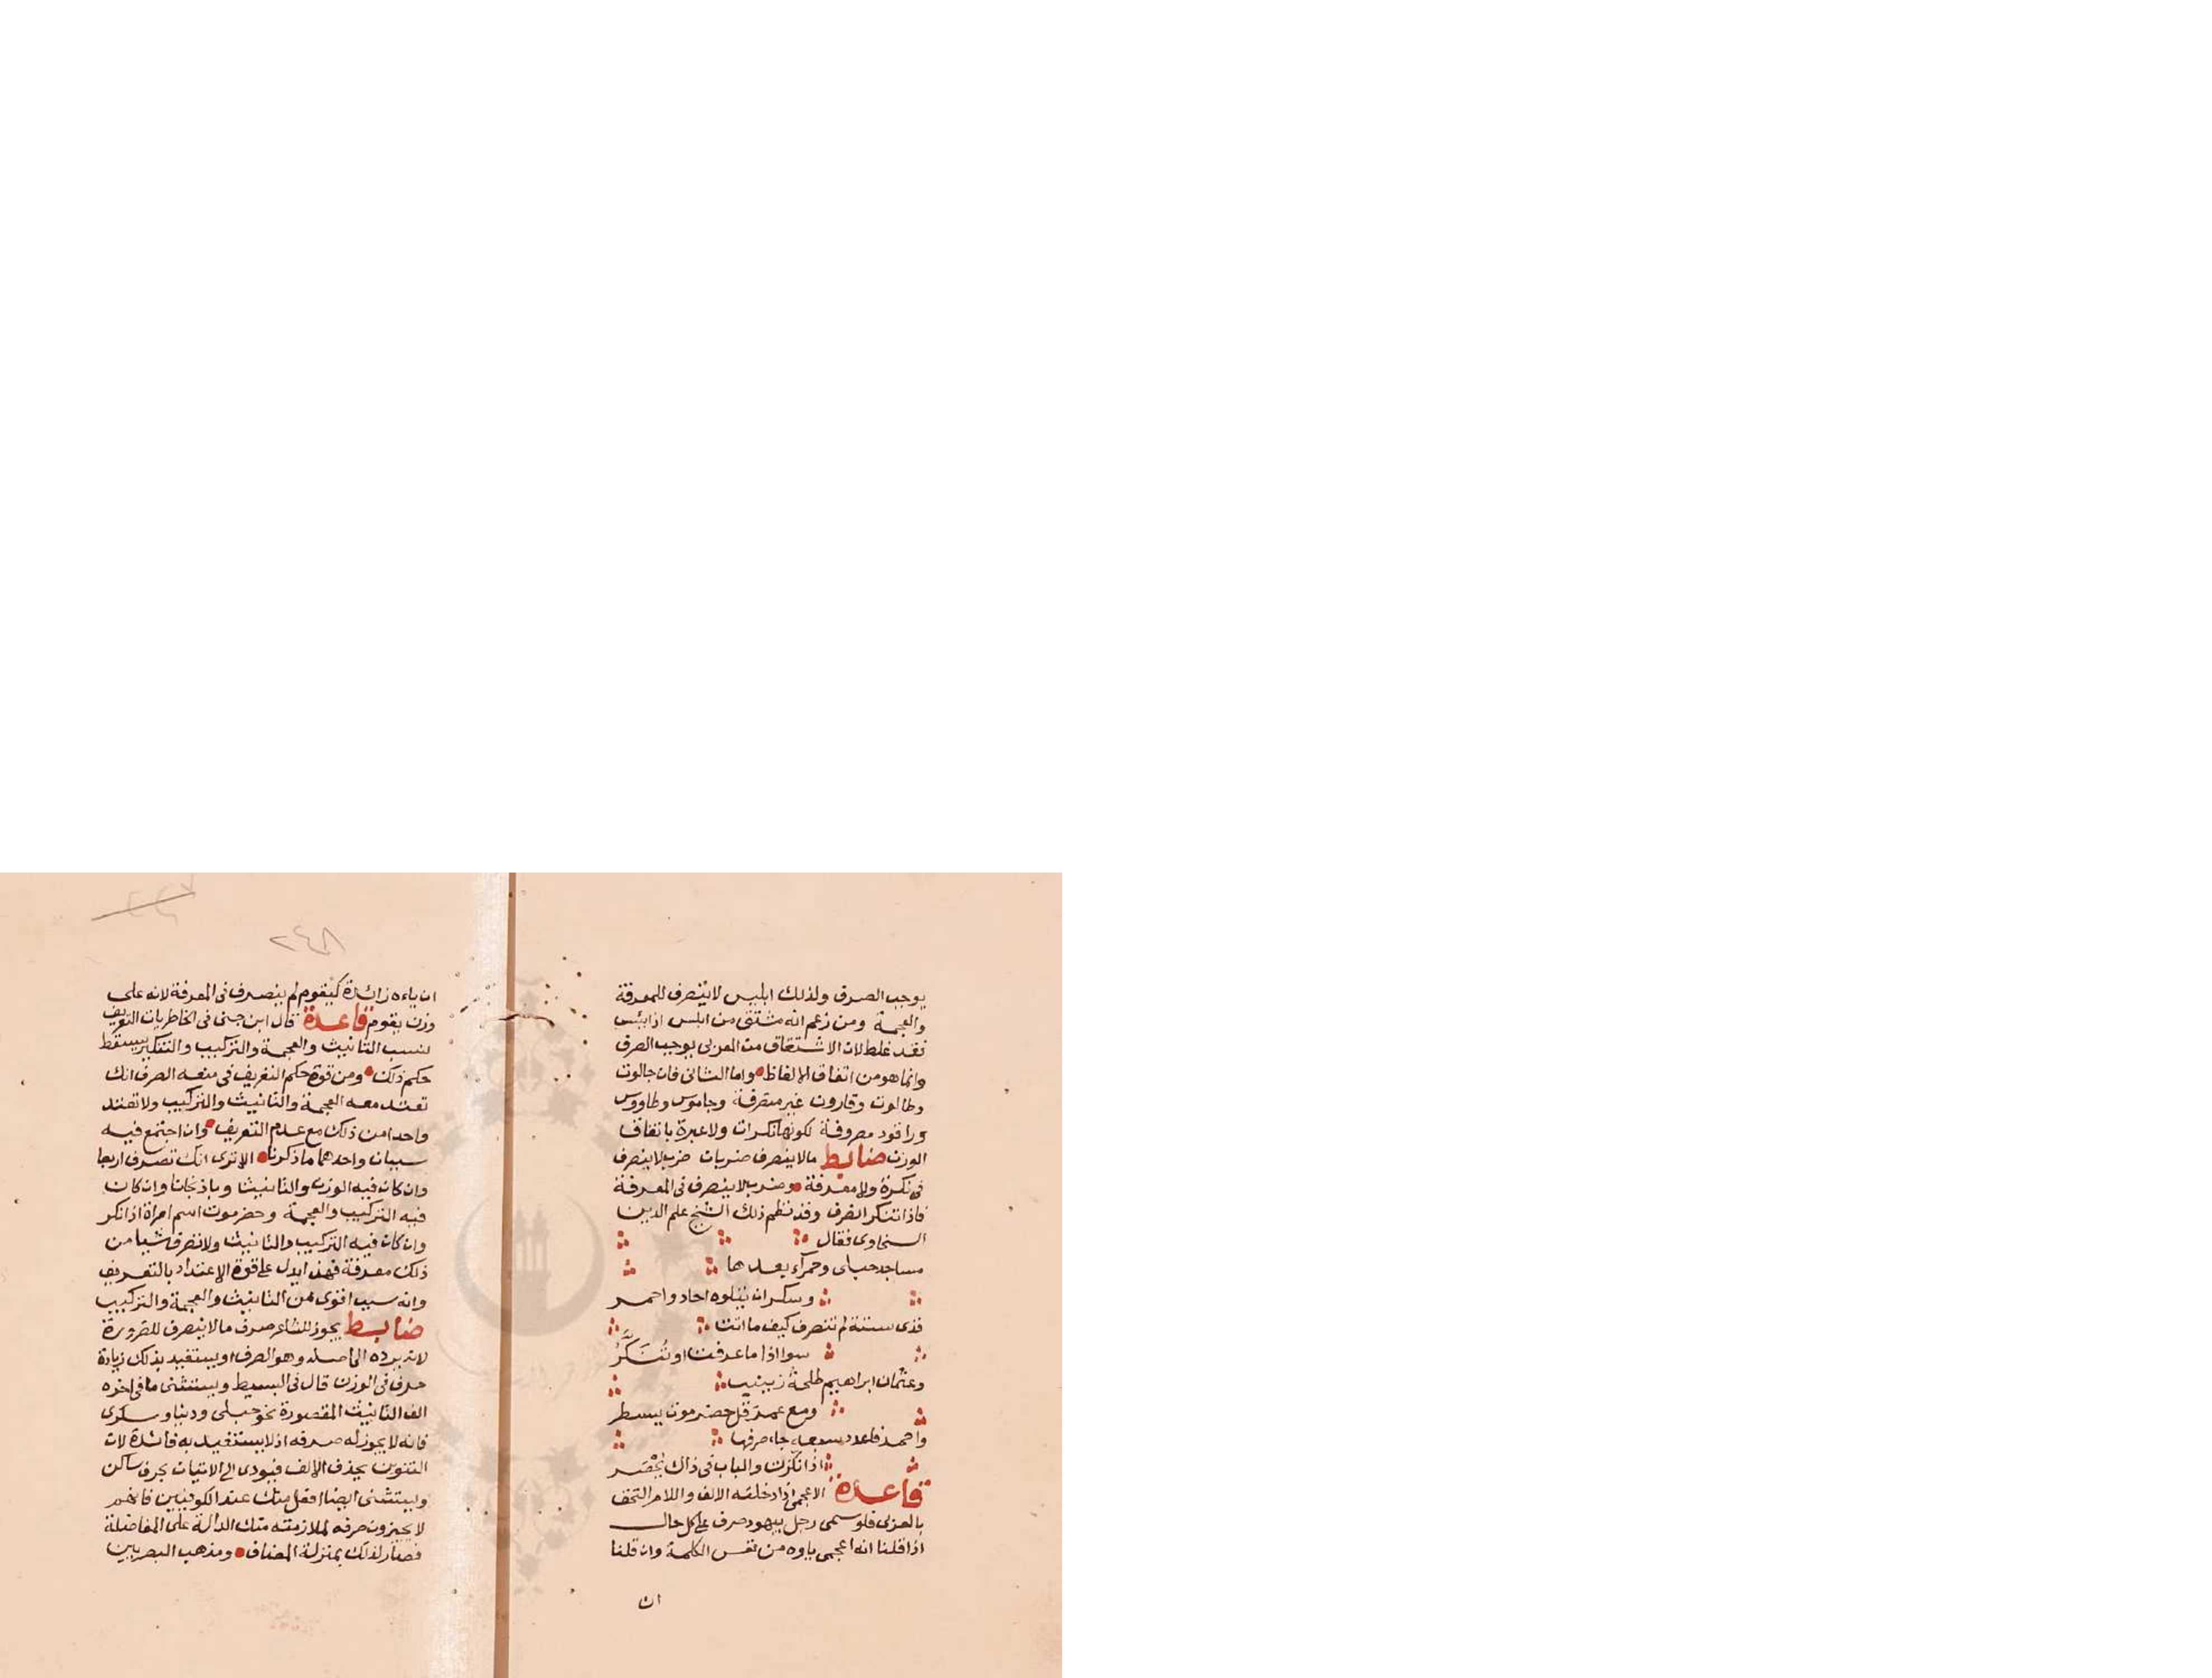 يوجب الصرف ولذلك ابليس لا ينصرف للمعرفة
والعجمة ومن زعم انه مشتق من ابلس اذا يئس
فقد غلط لان الاشتقاق من العربى يوجب الصرف
وانما هو من اتفاق الالفاظ واما الثانى فان جالوت
وطالوت وقارون غير منصرفة وجاموس وطاووس
وراقود مصروفة لكونها نكرات ولا عبرة باتفاق
الوزن ضابط ما لا ينصرف ضربان ضرب لا ينصرف
فى نكرة ولا معرفة وضرب لا ينصرف فى المعرفة
فاذا تنكر انصرف وقد نظم ذلك الشيخ علم الدين
السخاوى فقال
مساجد حبلى وحمراء بعدها
وسكران يتلوه احاد واحمر
فذى ستة لم تنصرف كيف ما اتت
سوا اذا ما عرفت او تُنَكَّرُ
وعثمان ابراهيم طلحة زينب
ومع عمر قل حضر موت يسطر
واحمد فاعدد سبعة جاء صرفها
اذا نكرت والباب فى ذاك يحصر
قاعدة الاعجمى اذا دخلته الالف واللام التحق
بالعربى فلو سمى رجل بيهود صرف على كل حال
اذا قلنا انه اعجمى ياوه من نفس الكلمة وان قلنا
ان
٢٤٨
ان ياءه زائدة كيقوم لم ينصرف فى المعرفة لانه على
وزن يقوم قاعدة قال ابن جنى فى الخاطريات التعريف
لسبب التانيث والعجمة والتركيب والتنكير يسقط
حكم ذلك ومن قوة حكم التعريف فى منعه الصرف انك
تعتد معه العجمة والتانيث والتركيب ولا تعتد
واحدا من ذلك مع عدم التعريف وان اجتمع فيه
سببان واحدهما ما ذكرنا الا ترى انك تصرف اربعا
وان كان فيه الوزن والتانيث وباذنجانا وان كان
فيه التركيب والعجمة وحضرموت اسم امراة اذا نكر
وان كان فيه التركيب والتانيث ولا تصرف شيا من
ذلك معرفة فهذا يدل على قوة الاعتداد بالتعريف
وانه سبب اقوى من التانيث والعجمة والتركيب
ضابط يجوز للشاعر صرف ما لا ينصرف للضرورة
لانه يرده الى اصله وهو الصرف ويستفيد بذلك زيادة
حرف فى الوزن قال فى البسيط ويستثنى ما فى اخره
الف التانيث المقصورة نحو حبلى ودنيا وسكرى
فانه لا يجوز له صرفه اذ لا يستفيد به فائدة لان
التنوين يحذف الالف فيودى الى الاتيان بحرف ساكن
ويستثنى ايضا افعل منك عند الكوفيين فانهم
لا يجيزون صرفه لملازمته منك الدالة على المفاضلة
فصار لذلك بمنزلة المضاف ومذهب البصريين